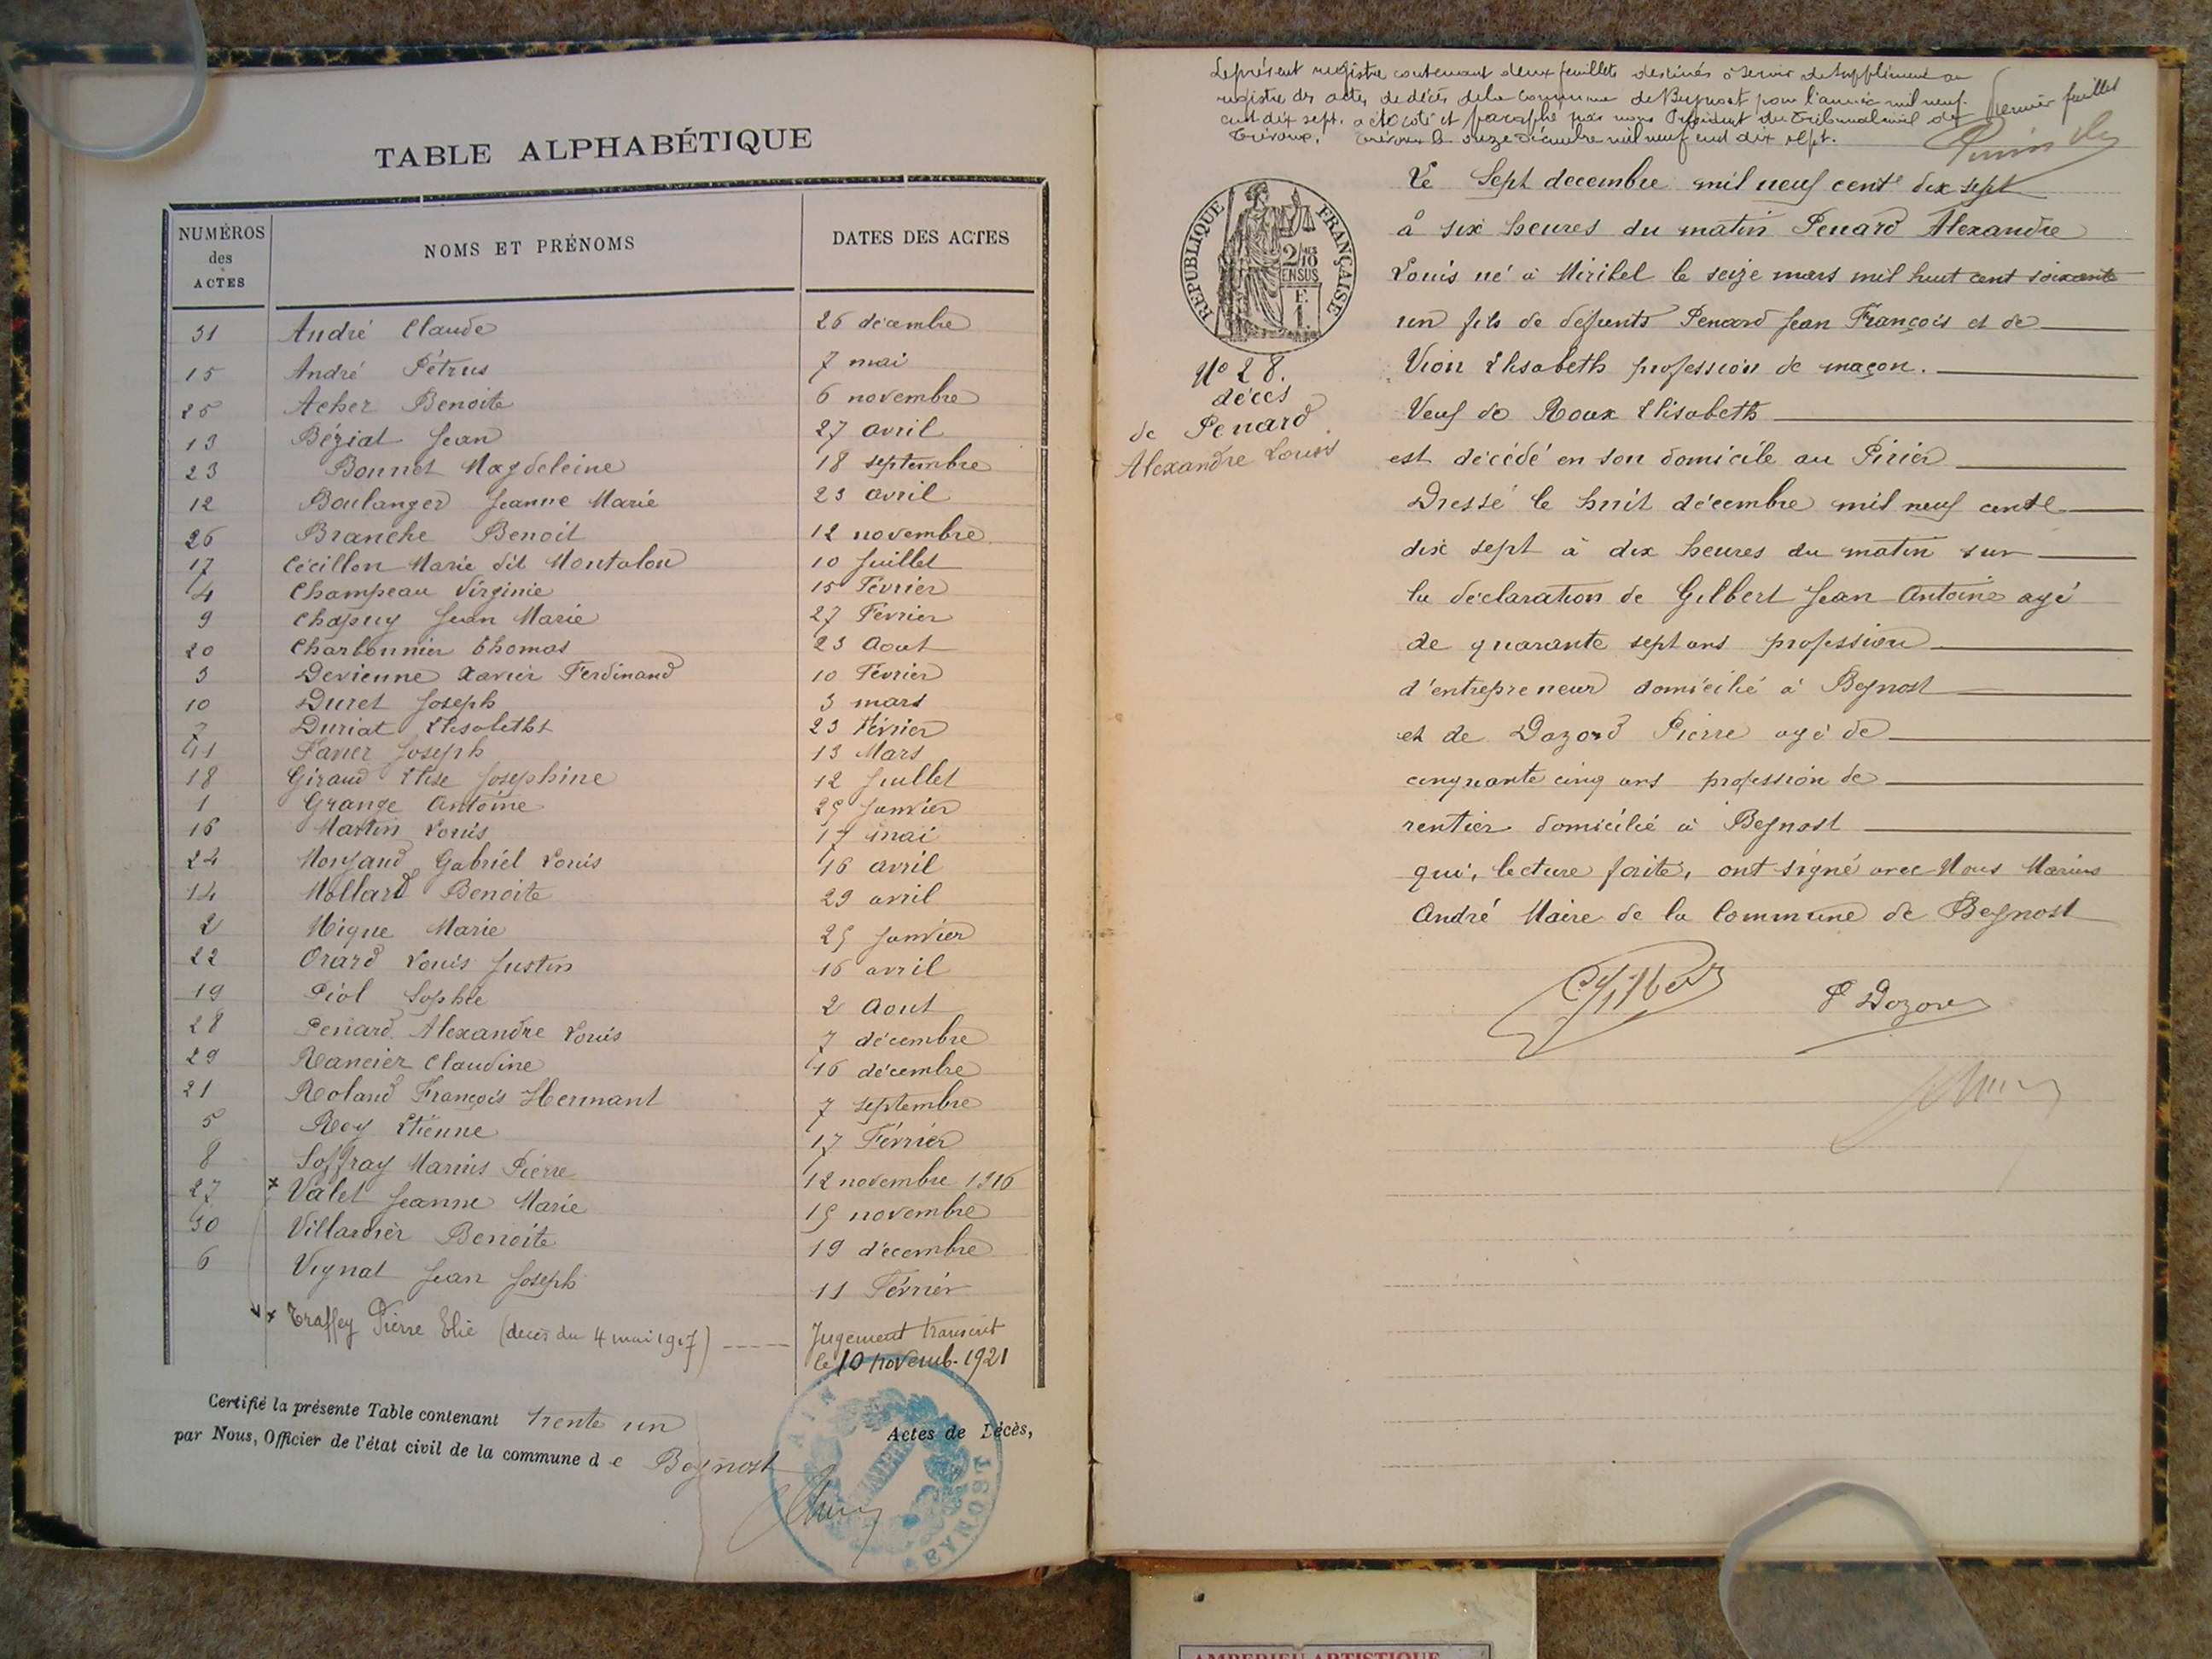 TABLE ALPHABÉTIQUE
NUMÉROS des ACTES
NOMS ET PRÉNOMS
DATES DES ACTES
31 André Claude 26 décembre
15 André Pétrus 7 mai
25 Acher Benoite 6 novembre
13 Béziat Jean 27 avril
23 Bonnet Magdeleine 18 septembre
12 Boulanger Jeanne Marie 23 avril
26 Branche Benoit 12 novembre
17 Cécillon Marie dit Montalon 10 Juillet
4 Champeau Virginie 15 Février
9 Chapuy Jean Marie 27 Février
20 Charbonnier Thomas 23 Aout
3 Devienne Xavier Ferdinand 10 Février
10 Duret Joseph 3 mars
7 Duriat Elisabeth 23 Février
11 Favier Joseph 13 Mars
18 Giraud Elise Josephine 12 Juillet
1 Grange Antoine 25 Janvier
16 Martin Louis 17 mai
24 Gabriel Louis 16 avril
14 Mollard Benoite 29 avril
2 Migue Marie 25 Janvier
22 Orard Louis Justin 16 avril
19 Piol Sophie 2 Aout
28 Penard Alexandre Louis 7 décembre
29 Rancier Claudine 16 décembre
21 Roland François Hermant 7 septembre
5 Rey Etienne 17 Février
8 Soffray Marius Pierre 12 novembre 1916
27 x Valet Jeanne Marie 15 novembre
30 Villardier Benoite 19 décembre
6 Vignat Jean Joseph 11 Février
x Traffey Pierre Elie (décès du 4 mai 1917) Jugement transcrit
le 10 novemb. 1921
Certifié la présente Table contenant trente un Actes de Décès,
par Nous, Officier de l'état civil de la commune de Beynost
AIN
MAIRIE
BEYNOST
Le présent registre contenant deux feuillets destinés à servir de supplément au
registre des actes de décès de la commune de Beynost pour l'année mil neuf
cent dix sept, a été coté et paraphé par nous Président du Tribunal civil de
Trévoux. Trévoux le onze décembre mil neuf cent dix sept.
Dernier feuillet
RÉPUBLIQUE FRANÇAISE
2/10 EN SUS
Le Sept decembre mil neuf cent dix sept
à six heures du matin Penard Alexandre
Louis né à Miribel le seize mars mil huit cent soixante
un fils de défunts Penard Jean François et de
Vion Elisabeth profession de maçon.
No 28.
décès
de Penard
Alexandre Louis
Veuf de Roux Elisabeth
est décédé en son domicile au Pirier
Dressé le huit décembre mil neuf cent
dix sept à dix heures du matin sur
la déclaration de Gilbert Jean Antoine agé
de quarante sept ans profession
d'entrepreneur domicilié à Beynost
et de Dozord Pierre agé de
cinquante cinq ans profession de
rentier domicilié à Beynost
qui, lecture faite, ont signé avec Nous Marius
André Maire de la Commune de Beynost
P Dozord
AMBERIEU ARTISTIQUE